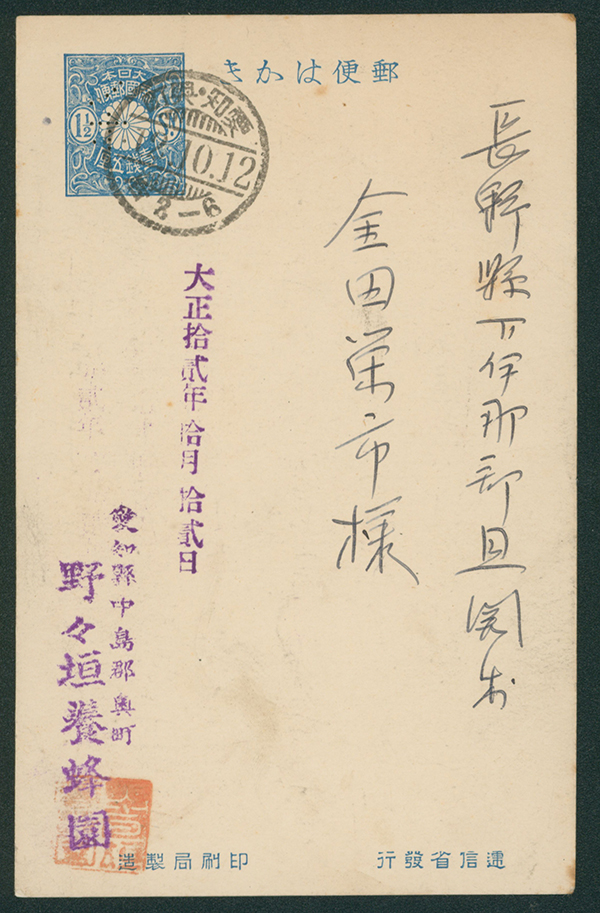 郵便はかき
大日本帝國郵便
1½
Sn.
壹錢五厘
愛知・奥町
12.10.12
2-6
長野縣下伊那郡且開村
金田栄市様
大正拾貳年拾月拾貳日
愛知縣中島郡奥町
野々垣養蜂園
遞信省發行
印刷局製造